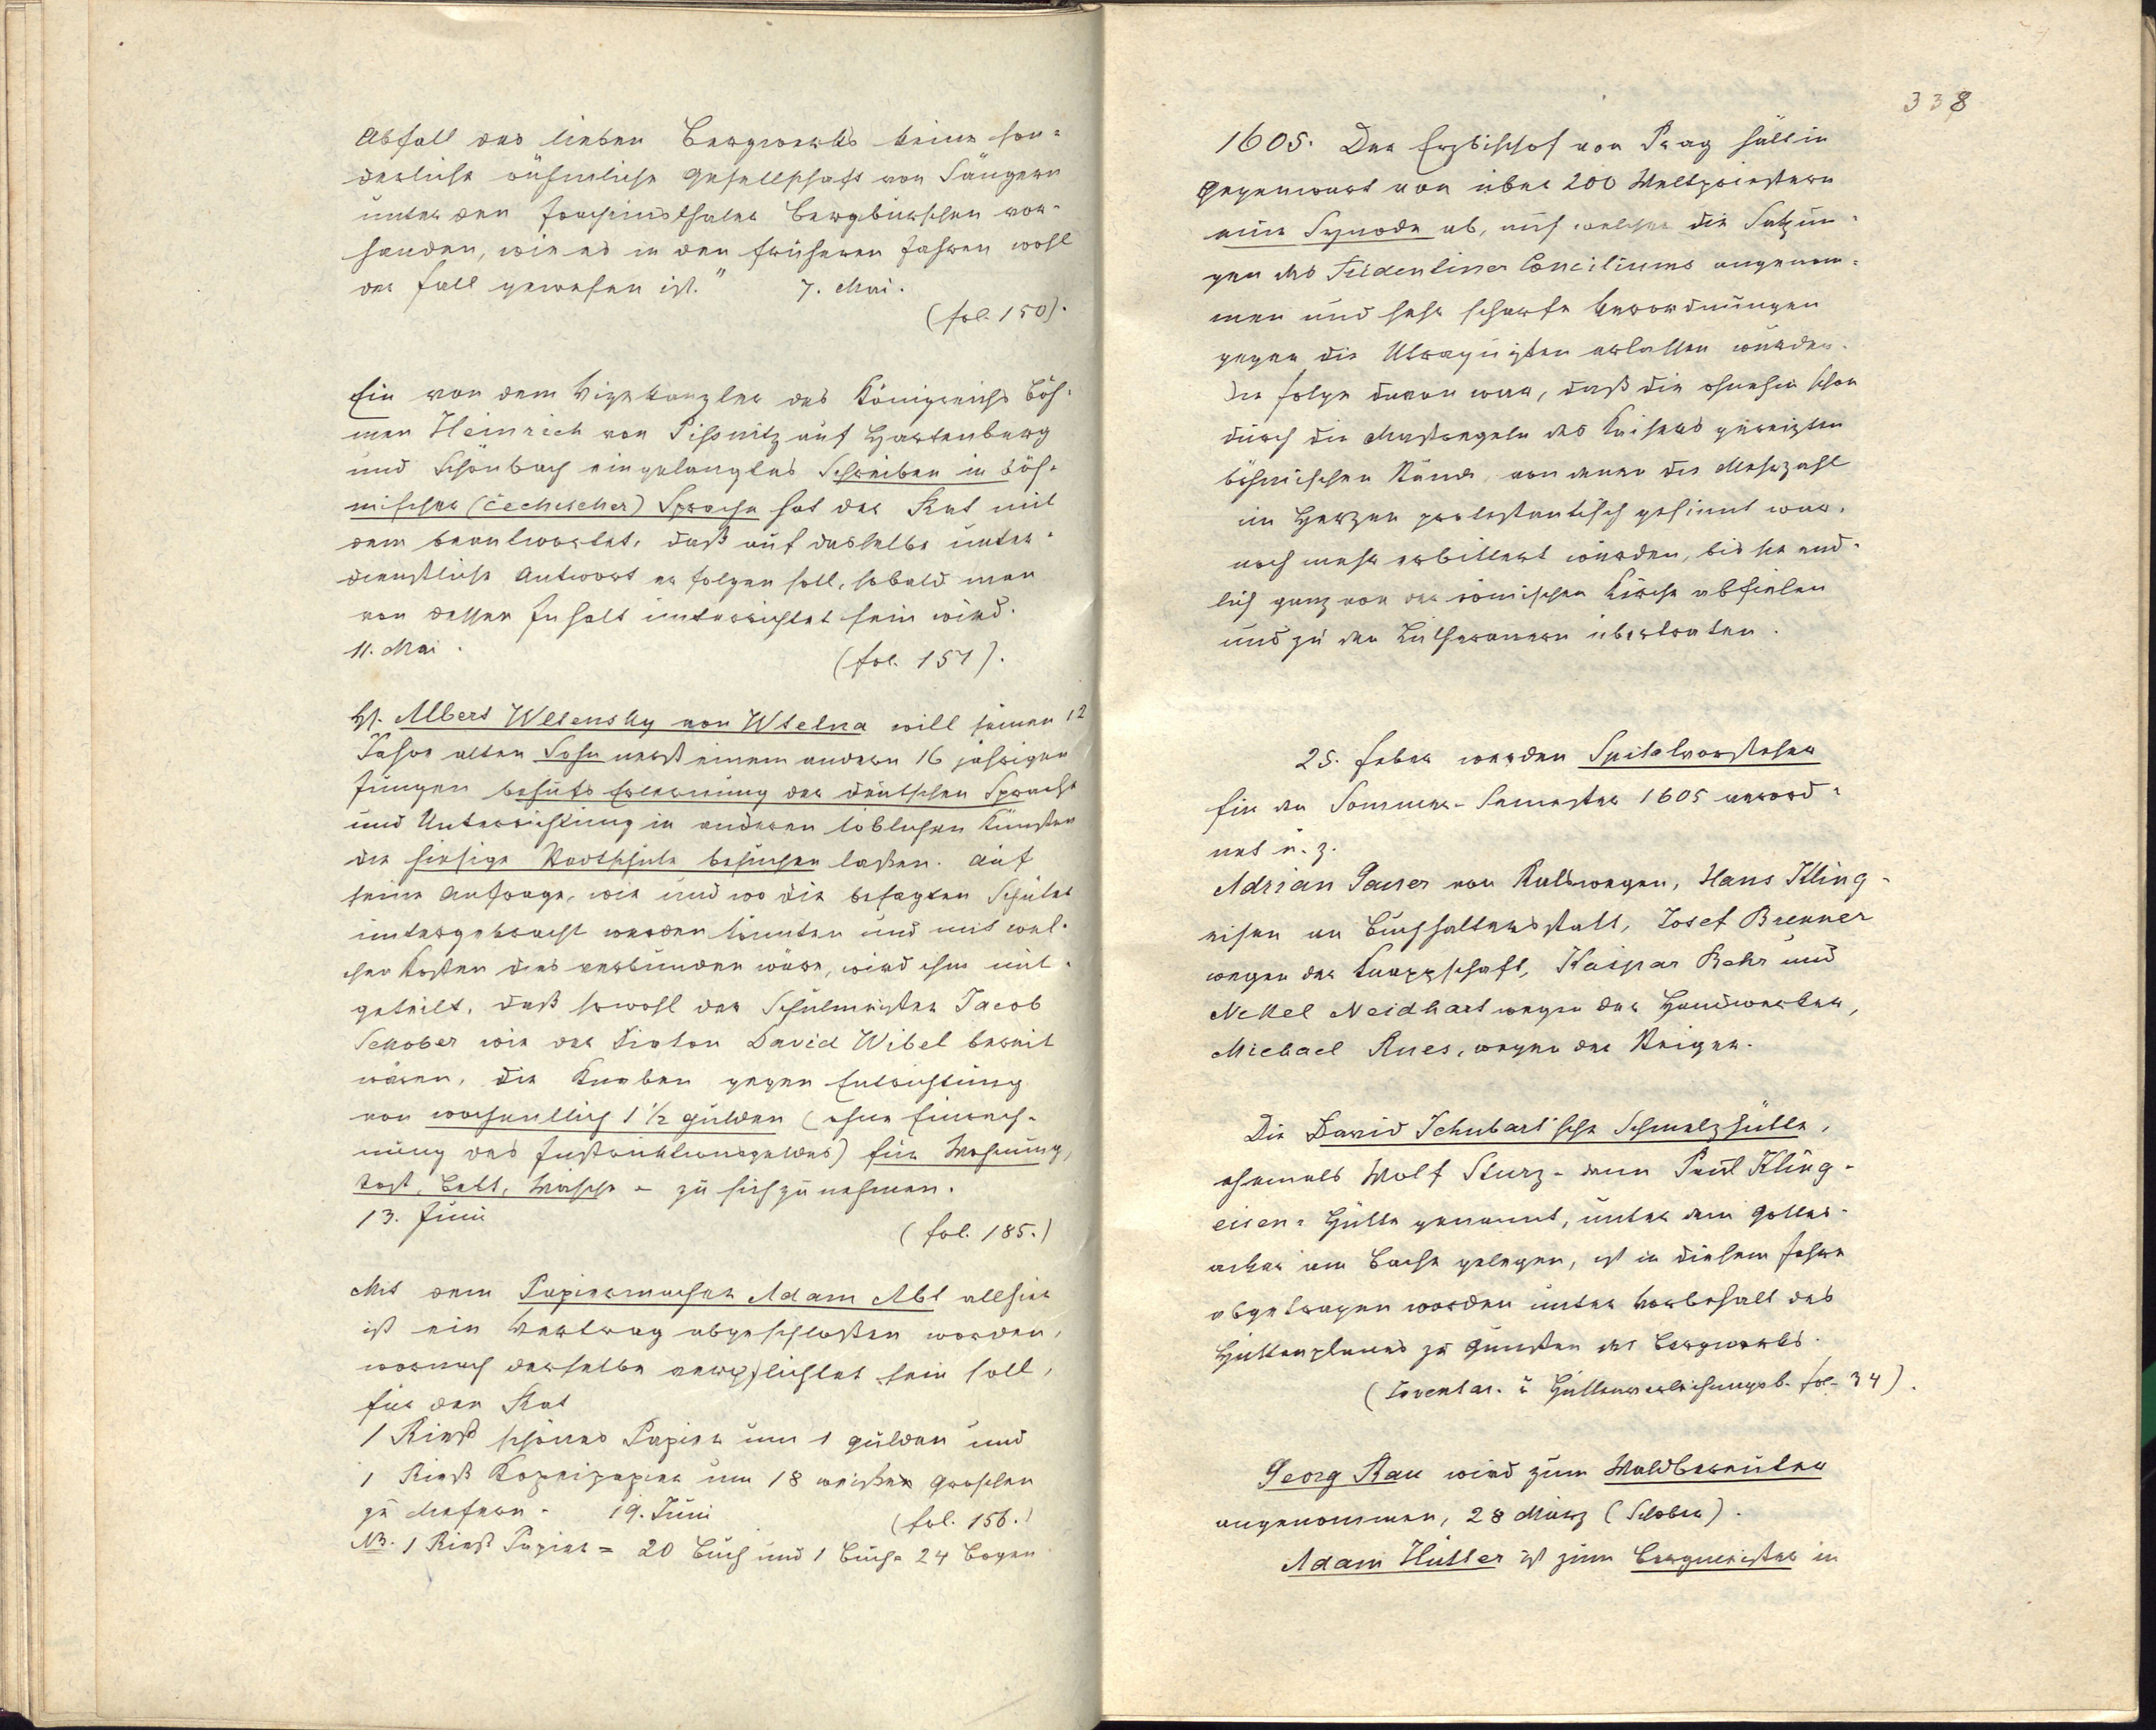 Abfall des lieben Bergwerks keine son-
derliche rühmliche Gesellschaft von Sängern
unter den Joachimsthaler Bergburschen vor-
handen, wie es in den früheren Jahren wohl
der Fall gewesen ist." 7. Mai.
(fol. 150).
Ein von dem Vizekanzler des Königreichs Böh-
men Heinrich von Pißnitz auf Hartenberg
und Schönbach eingelangtes Schreiben in böh-
mischer (čechischer) Sprache hat der Rat mit
dem beantwortet, daß auf dasselbe unter-
dienstliche Antwort erfolgen soll, sobald man
von dessen Inhalt unterrichtet sein wird.
11. Mai. (fol. 151).
H. Albert Wtensky von Wtelna will seinen 12
Jahre alten Sohn nebst einem andern 16 jährigen
Jungen behufs Erlernung der deutschen Sprache
und Unterrichtung in anderen löblichen Künsten
die hiesige Stadtschule besuchen laßen. Auf
seine Anfrage, wie und wo die besagten Schüler
untergebracht werden könnten und mit wel-
chen Kosten dies verbunden wäre, wird ihm mit-
geteilt, daß sowohl der Schulmeister Jacob
Schober wie der Diakon David Wibel bereit
wären, die Knaben gegen Entrichtung
von wochentlich 1 1/2 Gulden (ohne Einrech-
nung des Instruktionsgeldes) für Wohnung,
Kost, Bett, Wäsche - zu sich zu nehmen.
13. Juni (fol. 185.)
Mit dem Papiermacher Adam Abt allhier
ist ein Vertrag abgeschloßen worden,
wornach derselbe verpflichtet sein soll,
für den Rat
1 Rieß schönes Papier um 1 Gulden und
1 Rieß Konzeptpapier um 18 weiße Groschen
zu liefern. 19. Juni (fol. 156.)
NB. 1 Rieß Papier = 20 Buch und 1 Buch = 24 Bogen
338
1605. Der Erzbischof von Prag hält in
Gegenwart von über 200 Weltpriestern
eine Synode ab, auf welcher die Satzun-
gen des Tridentiner Conciliums angenom-
men und sehr scharfe Verordnungen
gegen die Utraquisten erlassen wurden.
Die Folge davon war, daß die ohnehin schon
durch die Maßregeln des Kaisers gereizten
böhmischen Stände, von denen die Mehrzahl
im Herzen protestantisch gesinnt war,
noch mehr erbittert wurden, bis sie end-
lich ganz von der römischen Kirche abfielen
und zu den Lutheranern übertraten.
25. Feber werden Spitalvorsteher
für den Sommer-Semester 1605 verord-
net u. z.
Adrian Ganer von Ratswegen, Hans Kling-
eisen an Buchhaltersstatt, Josef Brenner
wegen der Knappschaft, Kaspar Behr und
Nickel Neidhart wegen der Handwerker,
Michael Ries, wegen der Steiger.
Die David Schubart'sche Schmelzhütte,
ehemals Wolf Sturz- dann Paul Kling-
eisen- Hütte genannt, unter dem Gottes-
acker am Bache gelegen, ist in diesem Jahre
abgetragen worden unter Vorbehalt des
Hüttenplanes zu Gunsten des Bergwerks.
(Inventar. u Hüttenverleihungsb. fol. 34).
Georg Rau wird zum Waldbereuter
angenommen, 28 März (Schober).
Adam Hüller ist zum Bergmeister in